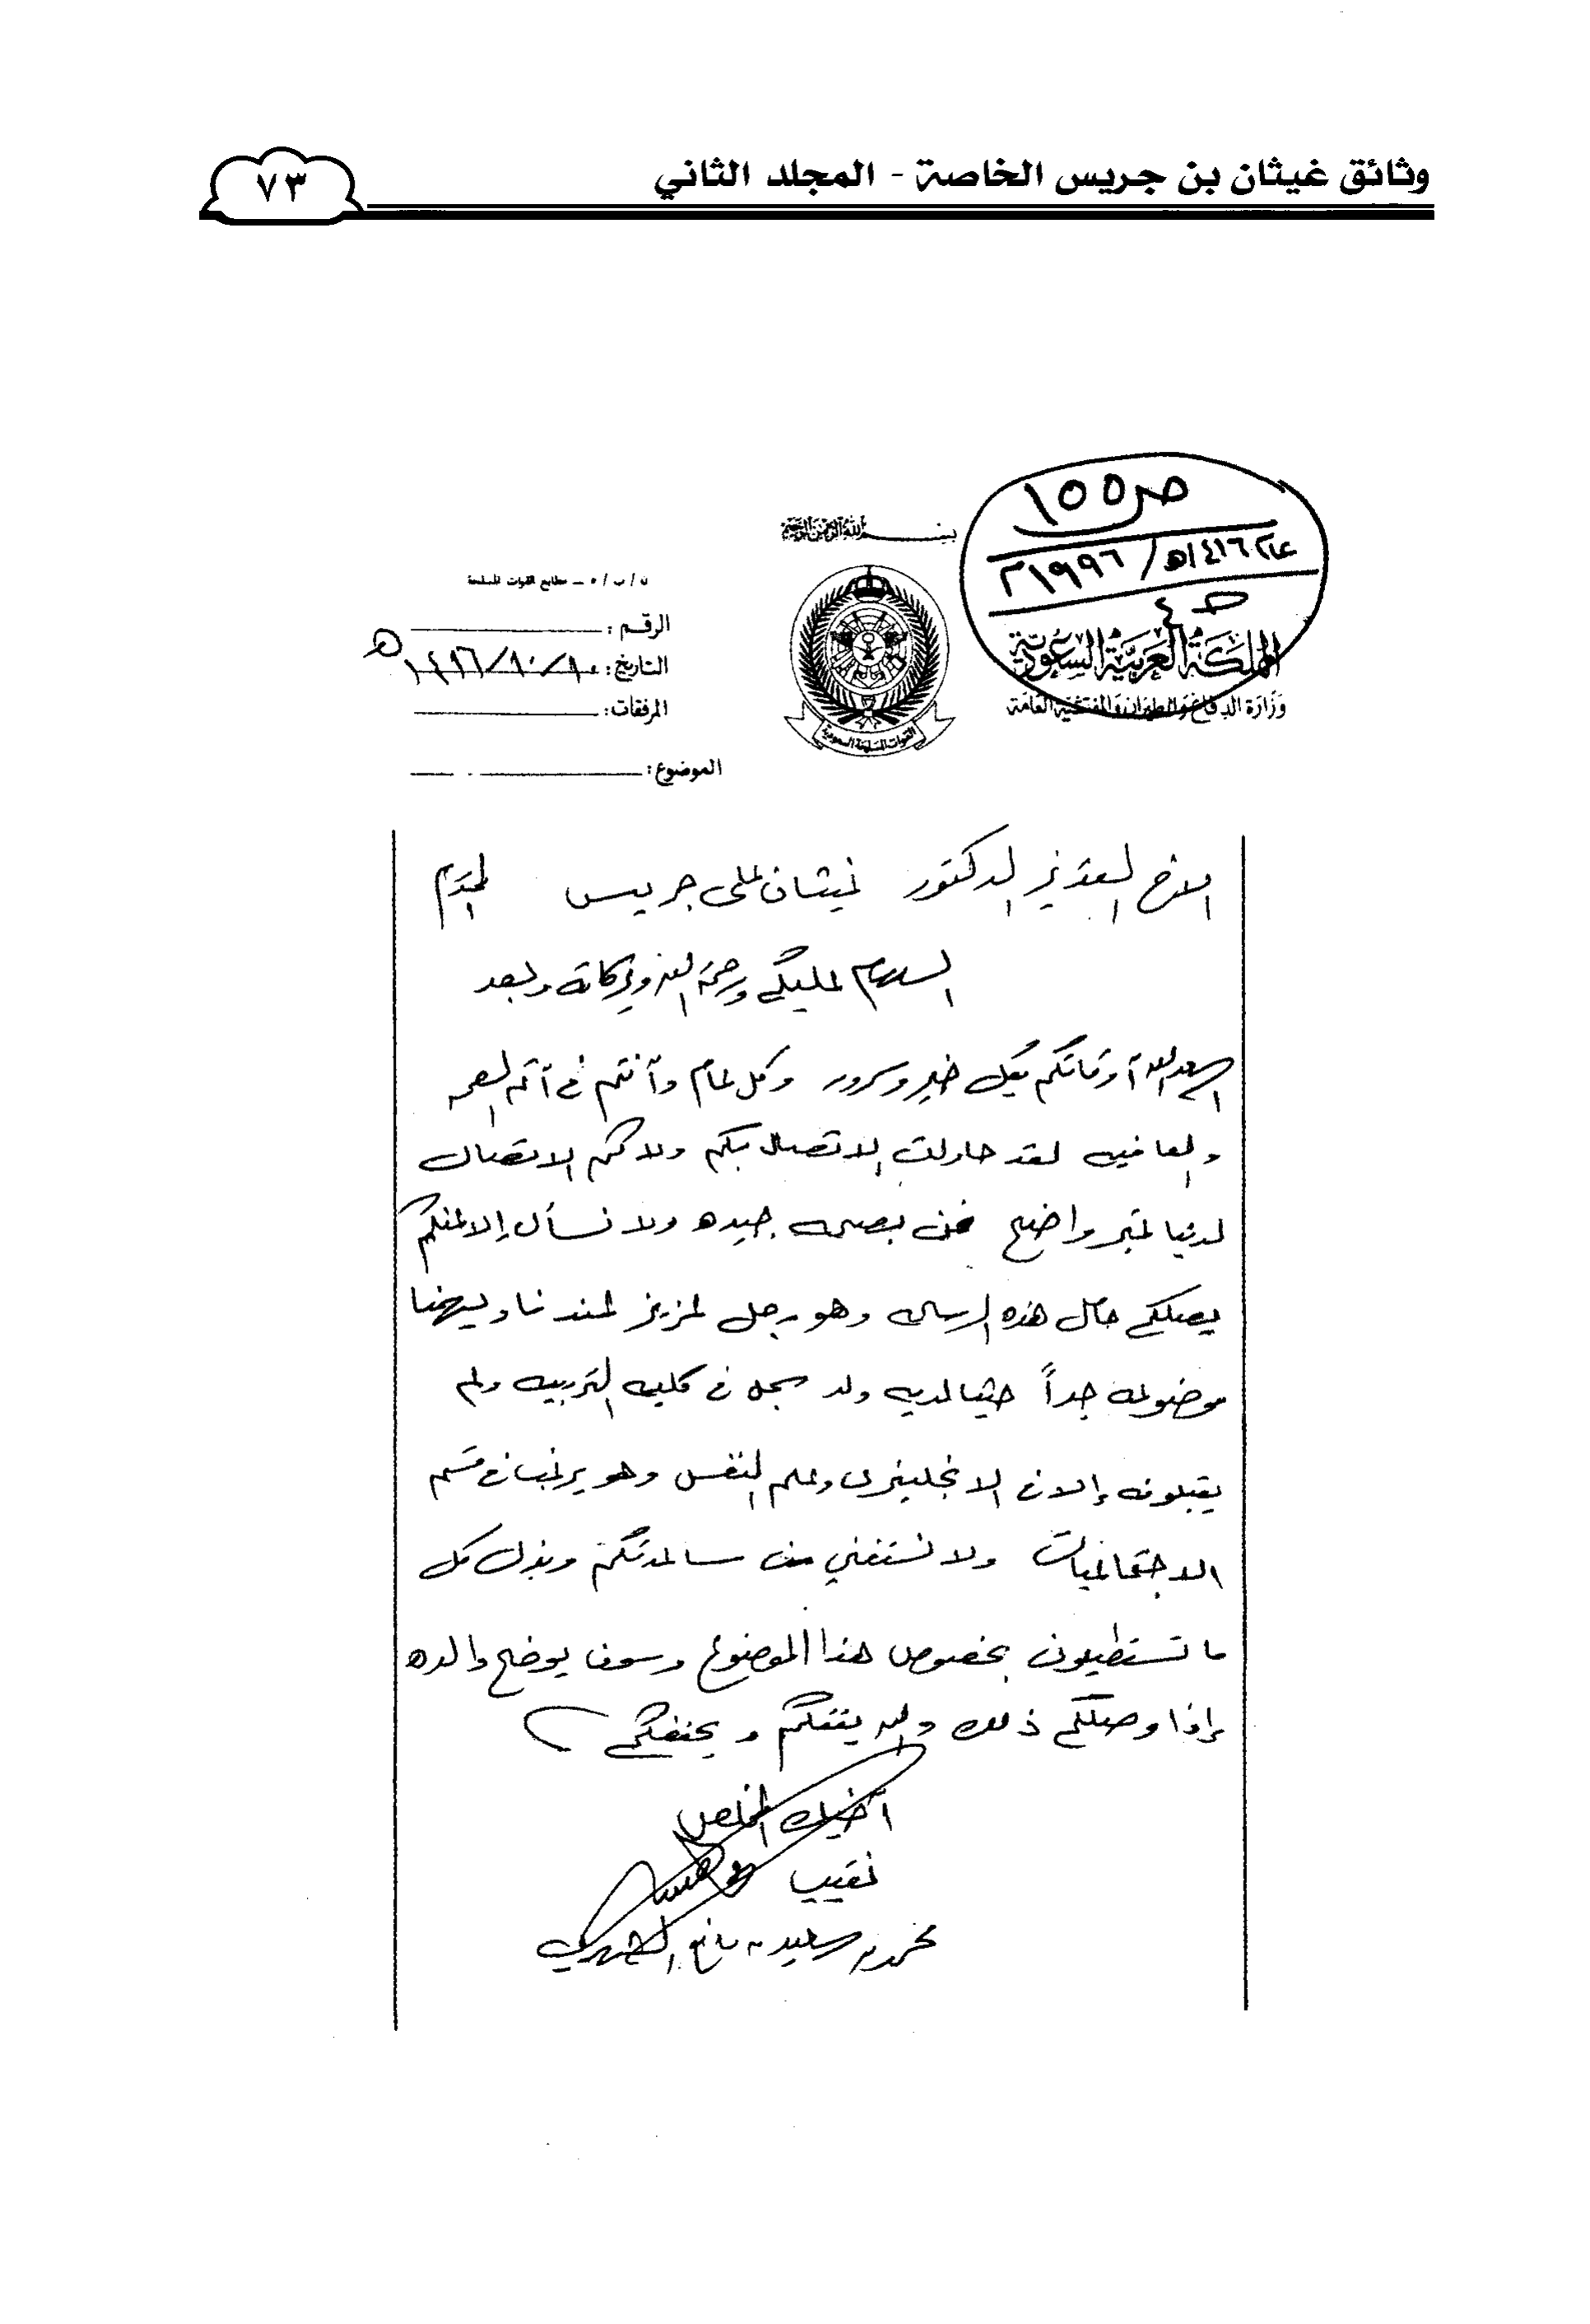 وثائق غيثان بن جريس الخاصة - المجلد الثاني
٧٣
ص ١٥٥
عام ١٤١٦هـ / ١٩٩٦م
ط ٤
بسم الله الرحمن الرحيم
المملكة العربية السعودية
وزارة الدفاع والطيران والمفتشية العامة
القوات المسلحة السعودية
ن / ب / ٥ – مطابع القوات المسلحة
الرقم :
التاريخ : ١٤١٦/١٠/١٠هـ
المرفقات :
الموضوع :
الاخ العزيز الدكتور غيثان علي جريس المحترم
السلام عليكم ورحمة الله وبركاته وبعد
اسعد الله أوقاتكم بكل خير وسرور وكل عام وأنتم في أتم الصحه
والعافيه لقد حاولت الاتصال بكم ولاكن الاتصال
لدنيا غير واضح نحن بصحه جيده ولا نسأل إلا عنكم
يصلكم حامل هذه الرساله وهو رجل عزيز عندنا ويهمنا
موضوعه جداً حيث لديه ولد سجل في كليه التربيه ولم
يقبلونه إلا في الانجليزي وعلم النفس وهو يرغب في قسم
الاجتماعيات ولا نستغني من مساعدتكم وبذل كل
ما تستطيعون بخصوص هذا الموضوع وسوف يوضح والده
إذا وصلكم ذلك والله يحفظكم
أخيك المخلص
نقيب
محمد بن سعيد بن مانع الشهري